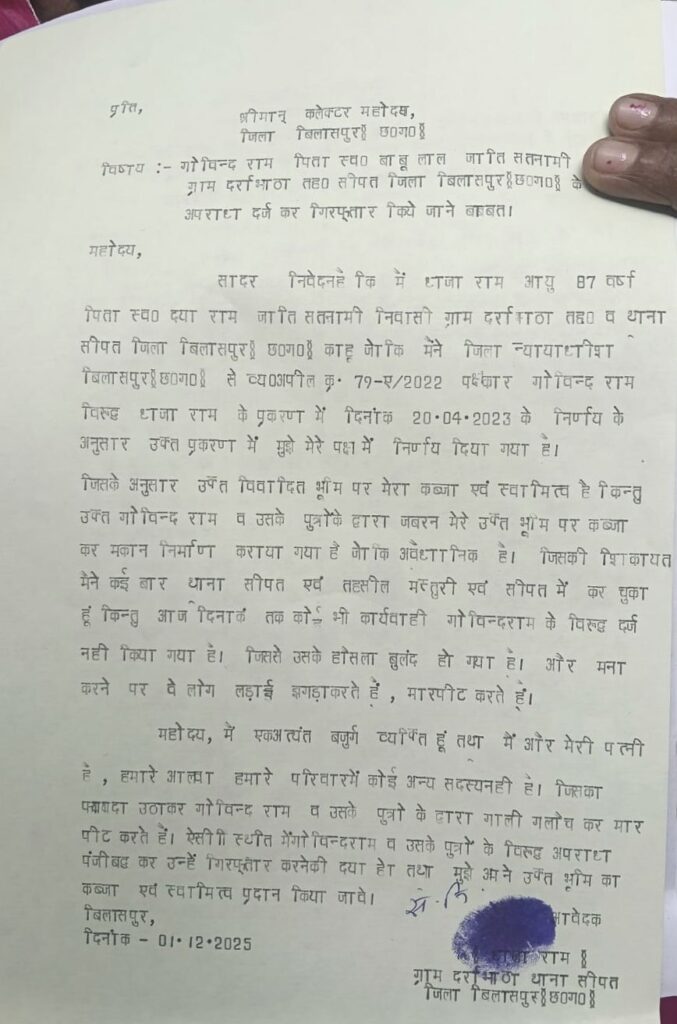 प्रति,
श्रीमान् कलेक्टर महोदय,
जिला बिलासपुर॥ छ0ग0॥
विषय :- गोविन्द राम पिता स्व0 बाबू लाल जाति सतनामी
ग्राम दर्राभाठा तह0 सीपत जिला बिलासपुर॥छ0ग0॥ के
अपराध दर्ज कर गिरफ्तार किये जाने बाबत।
महोदय,
सादर निवेदनहै कि मैं धाजा राम आयु 87 वर्ष
पिता स्व0 दया राम जाति सतनामी निवासी ग्राम दर्राभाठा तह0 व थाना
सीपत जिला बिलासपुर॥ छ0ग0॥ काहू जोकि मैंने जिला न्यायाधीश
बिलासपुर॥छ0ग0॥ से व्य0अपील कृ. 79-ए/2022 पक्षकार गोविन्द राम
विरूद्ध धाजा राम के प्रकरण में दिनांक 20.04.2023 के निर्णय के
अनुसार उक्त प्रकरण में मुझे मेरे पक्ष में निर्णय दिया गया है।
जिसके अनुसार उक्त विवादित भूमि पर मेरा कब्जा एवं स्वामित्व है किन्तु
उक्त गोविन्द राम व उसके पुत्रोंके द्वारा जबरन मेरे उक्त भूमि पर कब्जा
कर मकान निर्माण कराया गया है जोकि अवैधानिक है। जिसकी शिकायत
मैंने कई बार थाना सीपत एवं तहसील मस्तुरी एवं सीपत में कर चुका
हूं किन्तु आज दिनांक तक कोई भी कार्यवाही गोविन्दराम के विरूद्ध दर्ज
नही किया गया है। जिससे उसके हौसला बुलंद हो गया है। और मना
करने पर वे लोग लड़ाई झगड़ाकरते हैं, मारपीट करते हैं।
महोदय, मैं एकअत्यंत बजुर्ग व्यक्ति हूं तथा मैं और मेरी पत्नी
है, हमारे अलावा हमारे परिवारमें कोई अन्य सदस्यनही है। जिसका
फायदा उठाकर गोविन्द राम व उसके पुत्रो के द्वारा गाली गलोच कर मार
पीट करते हैं। ऐसी स्थीत मेंगोविन्दराम व उसके पुत्रों के विरूद्ध अपराध
पंजीबद्ध कर उन्हें गिरफ्तार करनेकी दया हो तथा मुझे अपने उक्त भूमि का
कब्जा एवं स्वामित्व प्रदान किया जावे।
बिलासपुर,
आवेदक
दिनांक - 01.12.2025
॥ धाजा राम ॥
ग्राम दर्राभाठा थाना सीपत
जिला बिलासपुर॥छ0ग0॥